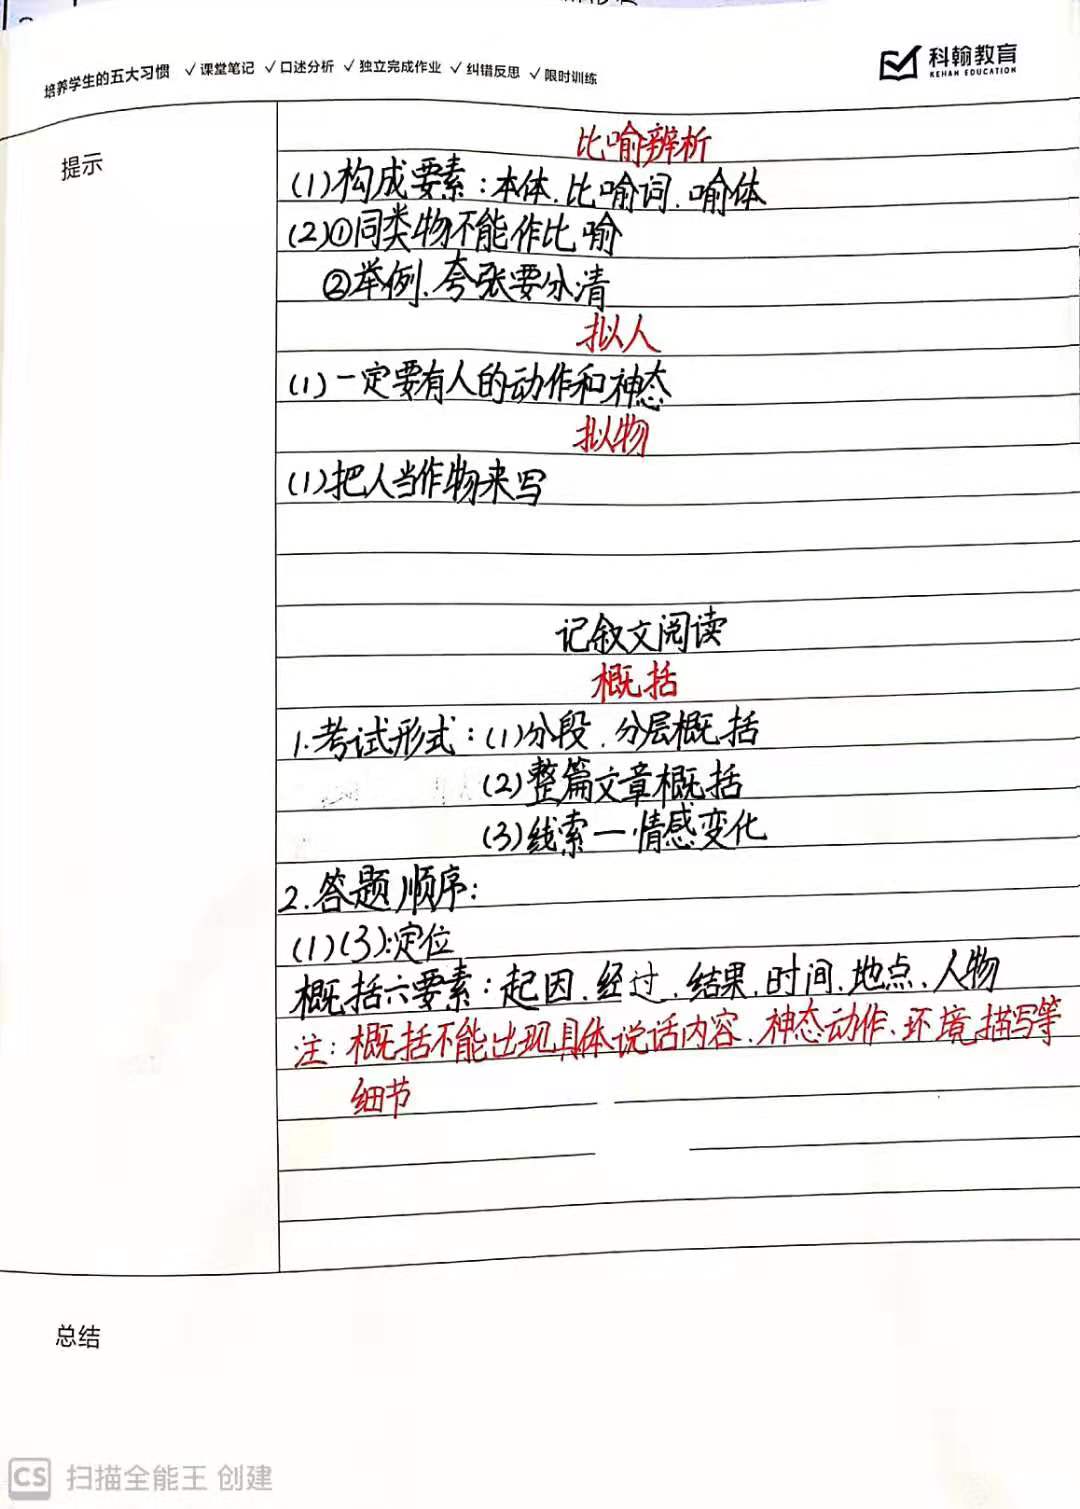 培养学生的五大习惯 ✓课堂笔记 ✓口述分析 ✓独立完成作业 ✓纠错反思 ✓限时训练
科翰教育
KEHAN EDUCATION
提示
比喻辨析
(1)构成要素:本体.比喻词.喻体
(2)①同类物不能作比喻
②举例.夸张要分清
拟人
(1)一定要有人的动作和神态
拟物
(1)把人当作物来写
记叙文阅读
概括
1.考试形式:(1)分段.分层概括
(2)整篇文章概括
(3)线索—情感变化
2.答题顺序:
(1)(3):定位
概括六要素:起因.经过.结果.时间.地点.人物
注:概括不能出现具体说话内容.神态动作.环境描写等
细节
总结
CS 扫描全能王 创建